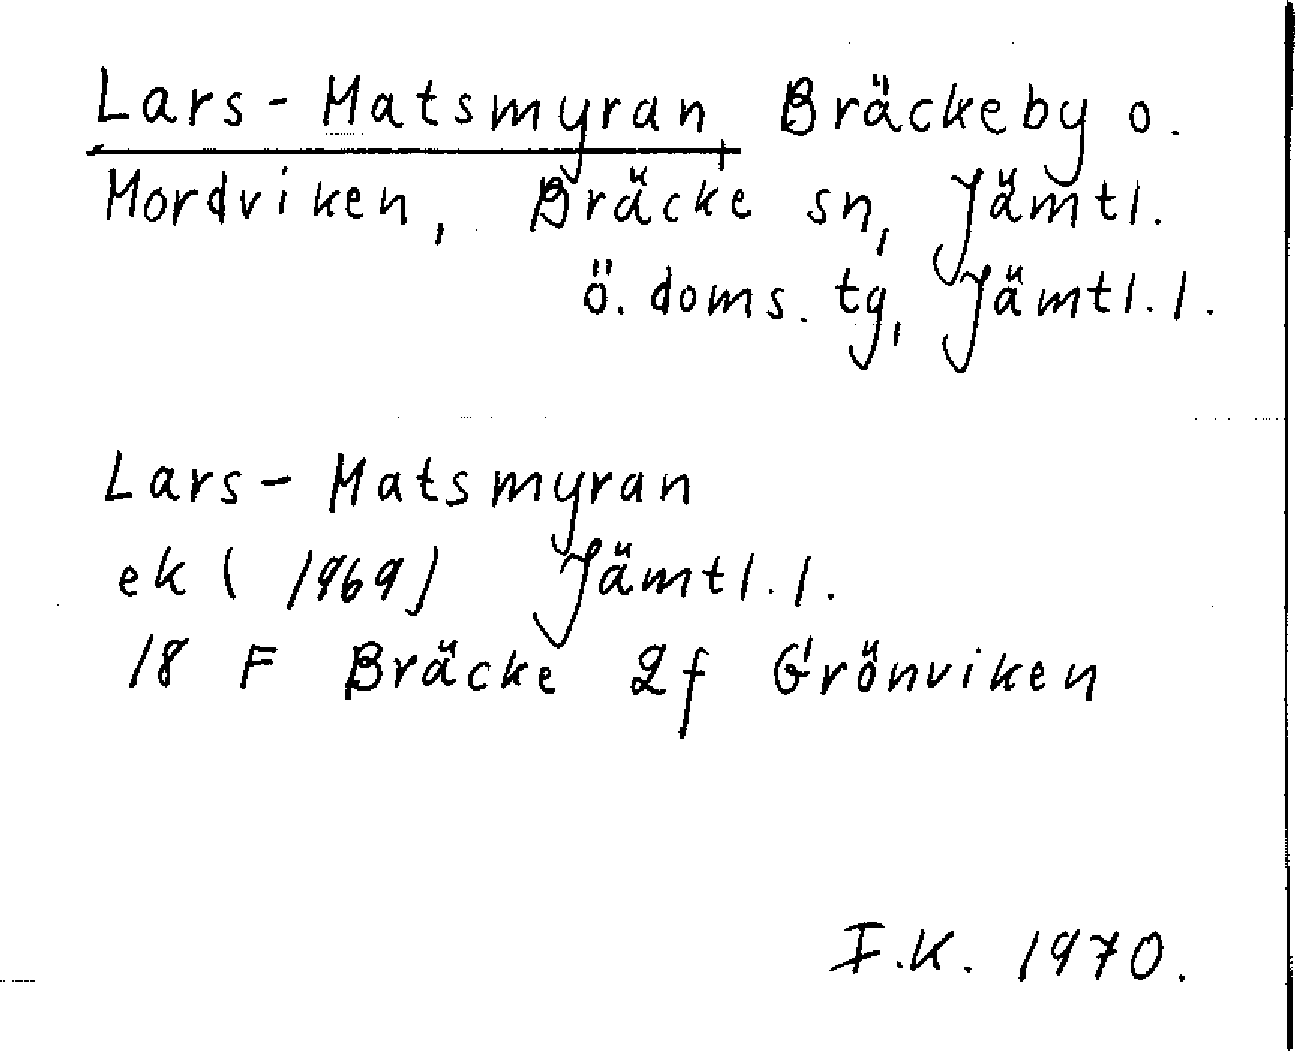 Lars-Matsmyran, Bräckeby o.
Mordviken, Bräcke sn, Jämtl.
ö. doms. tg, Jämtl. l.
Lars-Matsmyran
ek (1969) Jämtl. l.
18 F Bräcke 2f Grönviken
I.K. 1970.